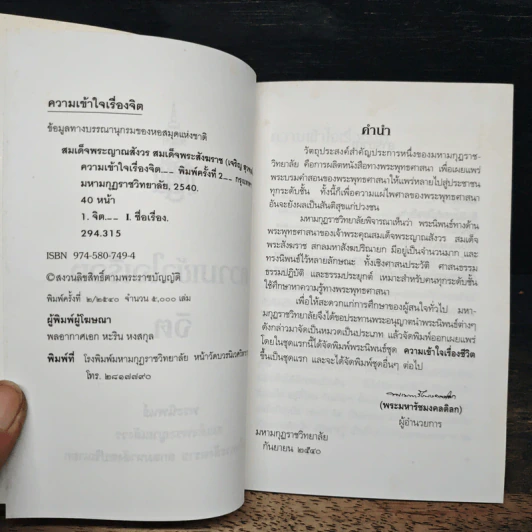 ความเข้าใจเรื่องจิต
ข้อมูลทางบรรณานุกรมของหอสมุดแห่งชาติ
สมเด็จพระญาณสังวร สมเด็จพระสังฆราช (เจริญ
ความเข้าใจเรื่องจิต-- พิมพ์ครั้งที่ 2--
มหามกุฏราชวิทยาลัย, 2540.
40 หน้า
1. จิต-- I. ชื่อเรื่อง.
294.315
ISBN 974-580-749-4
©สงวนลิขสิทธิ์ตามพระราชบัญญัติ
พิมพ์ครั้งที่ ๒/๒๕๔๐ จำนวน ๕,๐๐๐ เล่ม
ผู้พิมพ์ผู้โฆษณา
พลอากาศเอก หะริน หงสกุล
พิมพ์ที่ โรงพิมพ์มหามกุฏราชวิทยาลัย หน้าวัดบวรนิเวศวิหาร
โทร. ๒๘๑๗๗๙๐
คำนำ
วัตถุประสงค์สำคัญประการหนึ่งของมหามกุฏราช-
วิทยาลัย คือการผลิตหนังสือทางพระพุทธศาสนา เพื่อเผยแพร่
พระบรมคำสอนของพระพุทธศาสนา ให้แพร่หลายไปสู่ประชาชน
ทุกระดับชั้น ทั้งนี้ก็เพื่อความแผ่ไพศาลของพระพุทธศาสนา
อันจะยังผลเป็นสันติสุขแก่ปวงชน
มหามกุฏราชวิทยาลัยพิจารณาเห็นว่า พระนิพนธ์ทางด้าน
พระพุทธศาสนาของเจ้าพระคุณสมเด็จพระญาณสังวร สมเด็จ
พระสังฆราช สกลมหาสังฆปริณายก มีอยู่เป็นจำนวนมาก และ
ทรงนิพนธ์ไว้หลายลักษณะ ทั้งเชิงศาสนประวัติ ศาสนธรรม
ธรรมปฏิบัติ และธรรมประยุกต์ เหมาะสำหรับคนทุกระดับชั้น
ใช้ศึกษาหาความรู้ทางพระพุทธศาสนา
เพื่อให้สะดวกแก่การศึกษาของผู้สนใจทั่วไป มหา-
มกุฏราชวิทยาลัยจึงได้ขอประทานพระอนุญาตนำพระนิพนธ์ต่างๆ
ดังกล่าวมาจัดเป็นหมวดเป็นประเภท แล้วจัดพิมพ์ออกเผยแพร่
โดยในชุดแรกนี้ได้จัดพิมพ์พระนิพนธ์ชุด ความเข้าใจเรื่องชีวิต
ขึ้นเป็นชุดแรก และจะได้จัดพิมพ์ชุดอื่นๆ ต่อไป
(พระมหารัชมงคลดิลก)
ผู้อำนวยการ
มหามกุฏราชวิทยาลัย
กันยายน ๒๕๔๐